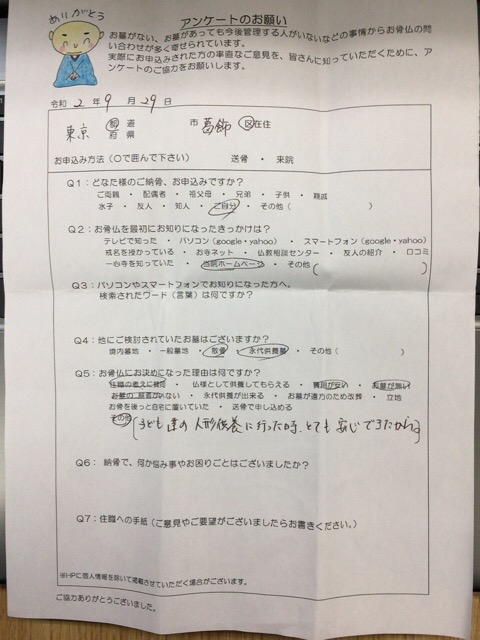 ありがとう
アンケートのお願い
お墓がない、お墓があっても今後管理する人がいないなどの事情からお骨仏の問
い合わせが多く寄せられています。
実際にお申込みされた方の率直なご意見を、皆さんに知っていただくために、ア
ンケートのご協力をお願いします。
令和 2 年 9 月 29 日
東京 都 道 府 県 市 葛飾 区 在住
お申込み方法(○で囲んで下さい) 送骨 ・ 来院
Q1:どなた様のご納骨、お申込みですか?
ご両親 ・ 配偶者 ・ 祖父母 ・ 兄弟 ・ 子供 ・ 親戚
水子 ・ 友人 ・ 知人 ・ ご自分 ・ その他( )
Q2:お骨仏を最初にお知りになったきっかけは?
テレビで知った ・ パソコン(google・yahoo) ・ スマートフォン(google・yahoo)
戒名を授かっている ・ お寺ネット ・ 仏教相談センター ・ 友人の紹介 ・ 口コミ
一心寺を知っていた ・ 当院ホームページ ・ その他( )
Q3:パソコンやスマートフォンでお知りになった方へ。
検索されたワード(言葉)は何ですか?
Q4:他にご検討されていたお墓はございますか?
境内墓地 ・ 一般墓地 ・ 散骨 ・ 永代供養墓 ・ その他( )
Q5:お骨仏にお決めになった理由は何ですか?
住職の考えに賛同 ・ 仏様として供養してもらえる ・ 費用が安い ・ お墓が無い
お墓の継承者がいない ・ 永代供養が出来る ・ お墓が遠方のため改葬 ・ 立地
お骨を後っと自宅に置いていた ・ 送骨で申し込める
その他(子ども達の人形供養に行った時、とても安心できたから)
Q6: 納骨で、何か悩み事やお困りごとはございましたか?
Q7:住職への手紙(ご意見やご要望がございましたらお書きください。)
※HPに個人情報を除いて掲載させていただく場合がございます。
ご協力ありがとうございました。